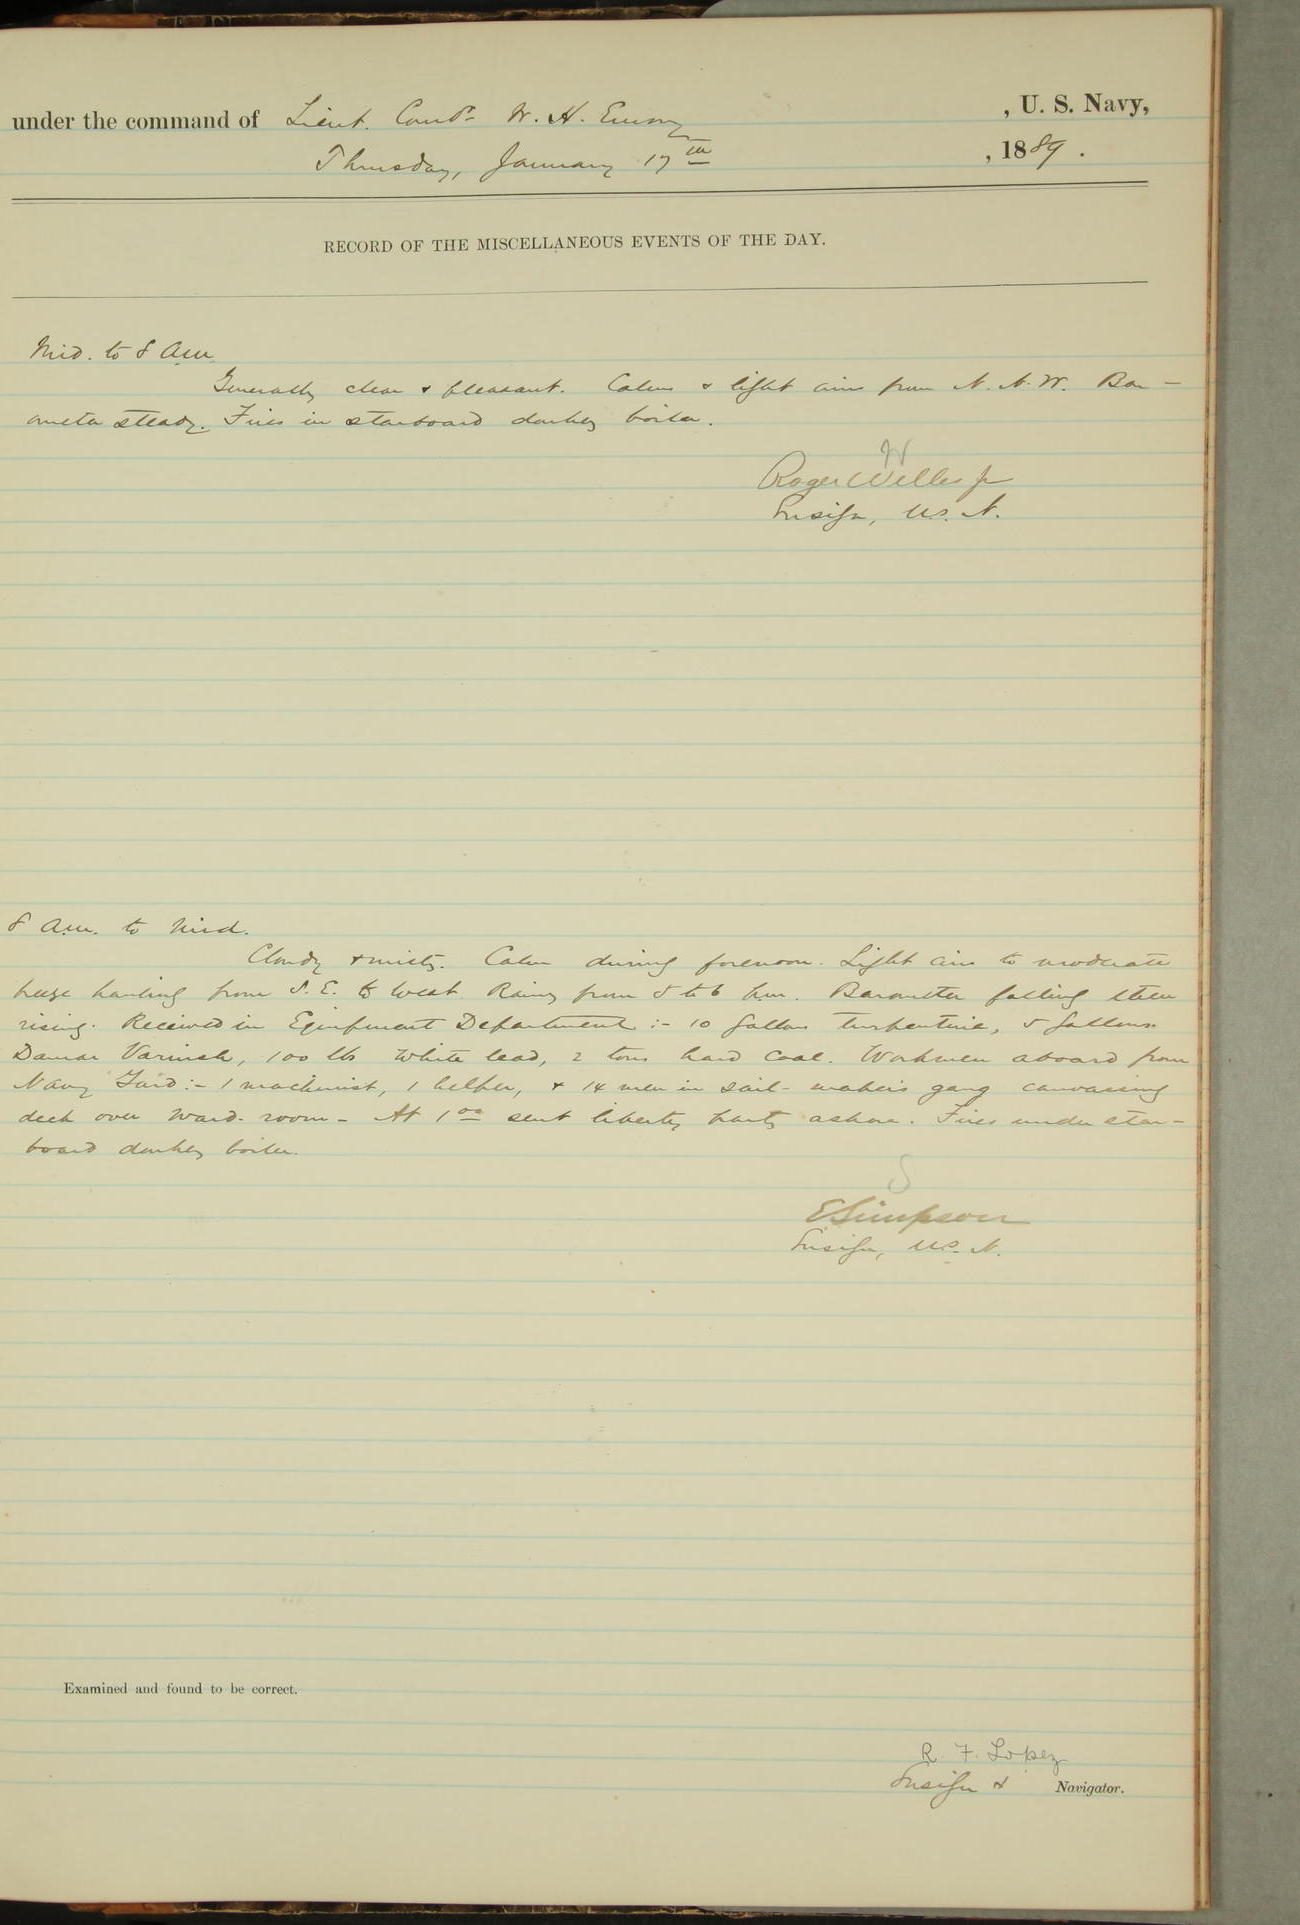 under the command of Lieut. Comd'r W. H. Emory, U. S. Navy,
Thursday, January 17th, 1889.
RECORD OF THE MISCELLANEOUS EVENTS OF THE DAY.
Mid. to 8 A.M.
Generally clear & pleasant. Calm & light airs from N. N. W. Bar-
ometer steady. Fires in starboard donkey boiler.
W
Roger Welles Jr
Ensign, U.S.N.
8 A.M. to Mid.
Cloudy & misty. Calm during forenoon. Light airs to moderate
breeze hauling from S. E. to West. Rainy from 5 to 6 P.M. Barometer falling then
rising. Received in Equipment Department :- 10 gallons turpentine, 5 gallons
Damar Varnish, 100 lbs white lead, 2 tons hard coal. Workmen aboard from
Navy Yard :- 1 machinist, 1 helper, & 14 men in sail-maker's gang canvassing
deck over ward-room - At 1 00 sent liberty party ashore. Fires under star-
board donkey boiler.
S
E Simpson
Ensign, U.S.N.
Examined and found to be correct.
R. F. Lopez
Ensign & Navigator.